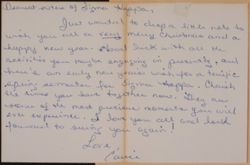 Dearest sisters of Sigma Kappa,
Just wanted to drop a little note to
wish you all a very merry Christmas and a
happy new year. Good luck with all the
activities you may be engaging in presently, and
here's an early new years wish for a terrific
spring semester for Sigma Kappa. Cherish
the times you have together now. They are
some of the most precious moments you will
ever experience. I love you all and look
forward to seeing you again!
Love,